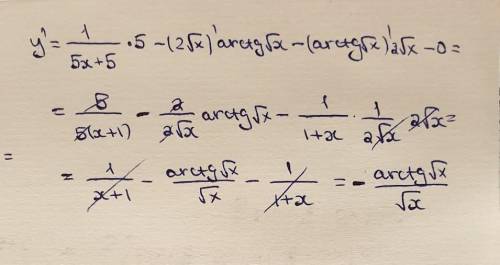 y' = 1/(5x+5) · 5 - (2√x)' arctg√x - (arctg√x)' 2√x - 0 =
= 5/(5(x+1)) - 2/(2√x) arctg√x - 1/(1+x) · 1/(2√x) 2√x =
=
= 1/(x+1) - arctg√x/√x - 1/(1+x) = - arctg√x/√x